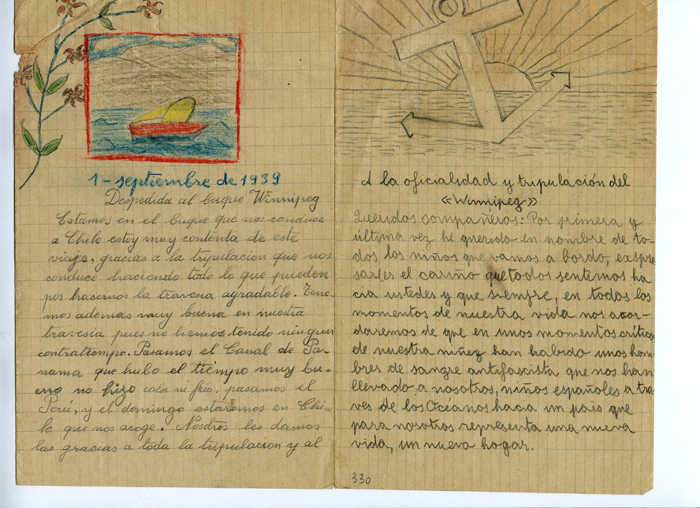 1 - septiembre de 1939
Despedida al buque Winnipeg
Estamos en el buque que nos conduce
a Chile estoy muy contenta de este
viaje. gracias a la tripulacion que nos
conduce haciendo todo lo que pueden
por hacernos la travesia agradable. Tene-
mos ademas muy buena en nuestra
travesia pues no hemos tenido ningun
contratiempo. Pasamos el Canal de Pa-
nama que hubo el tiempo muy bu-
eno no hizo calor ni frio, pasamos el
Perú, y el domingo estaremos en Chi-
le que nos acoge. Nosotros les damos
las gracias a toda la tripulacion y al
A la oficialidad y tripulación del
«Winnipeg»
Queridos compañeros: Por primera y
última vez he querido en nombre de to-
dos los niños que vamos a bordo, expre
sarles el cariño que todos sentimos ha
cia ustedes y que siempre, en todos los
momentos de nuestra vida nos acor-
daremos de que en unos momentos críticos
de nuestra niñez han habido unos hom-
bres de sangre antifascista que nos han
llevado a nosotros, niños españoles a tra-
ves de los Oceanos hacia un pais que
para nosotros representa una nueva
vida, un nuevo hogar.
330